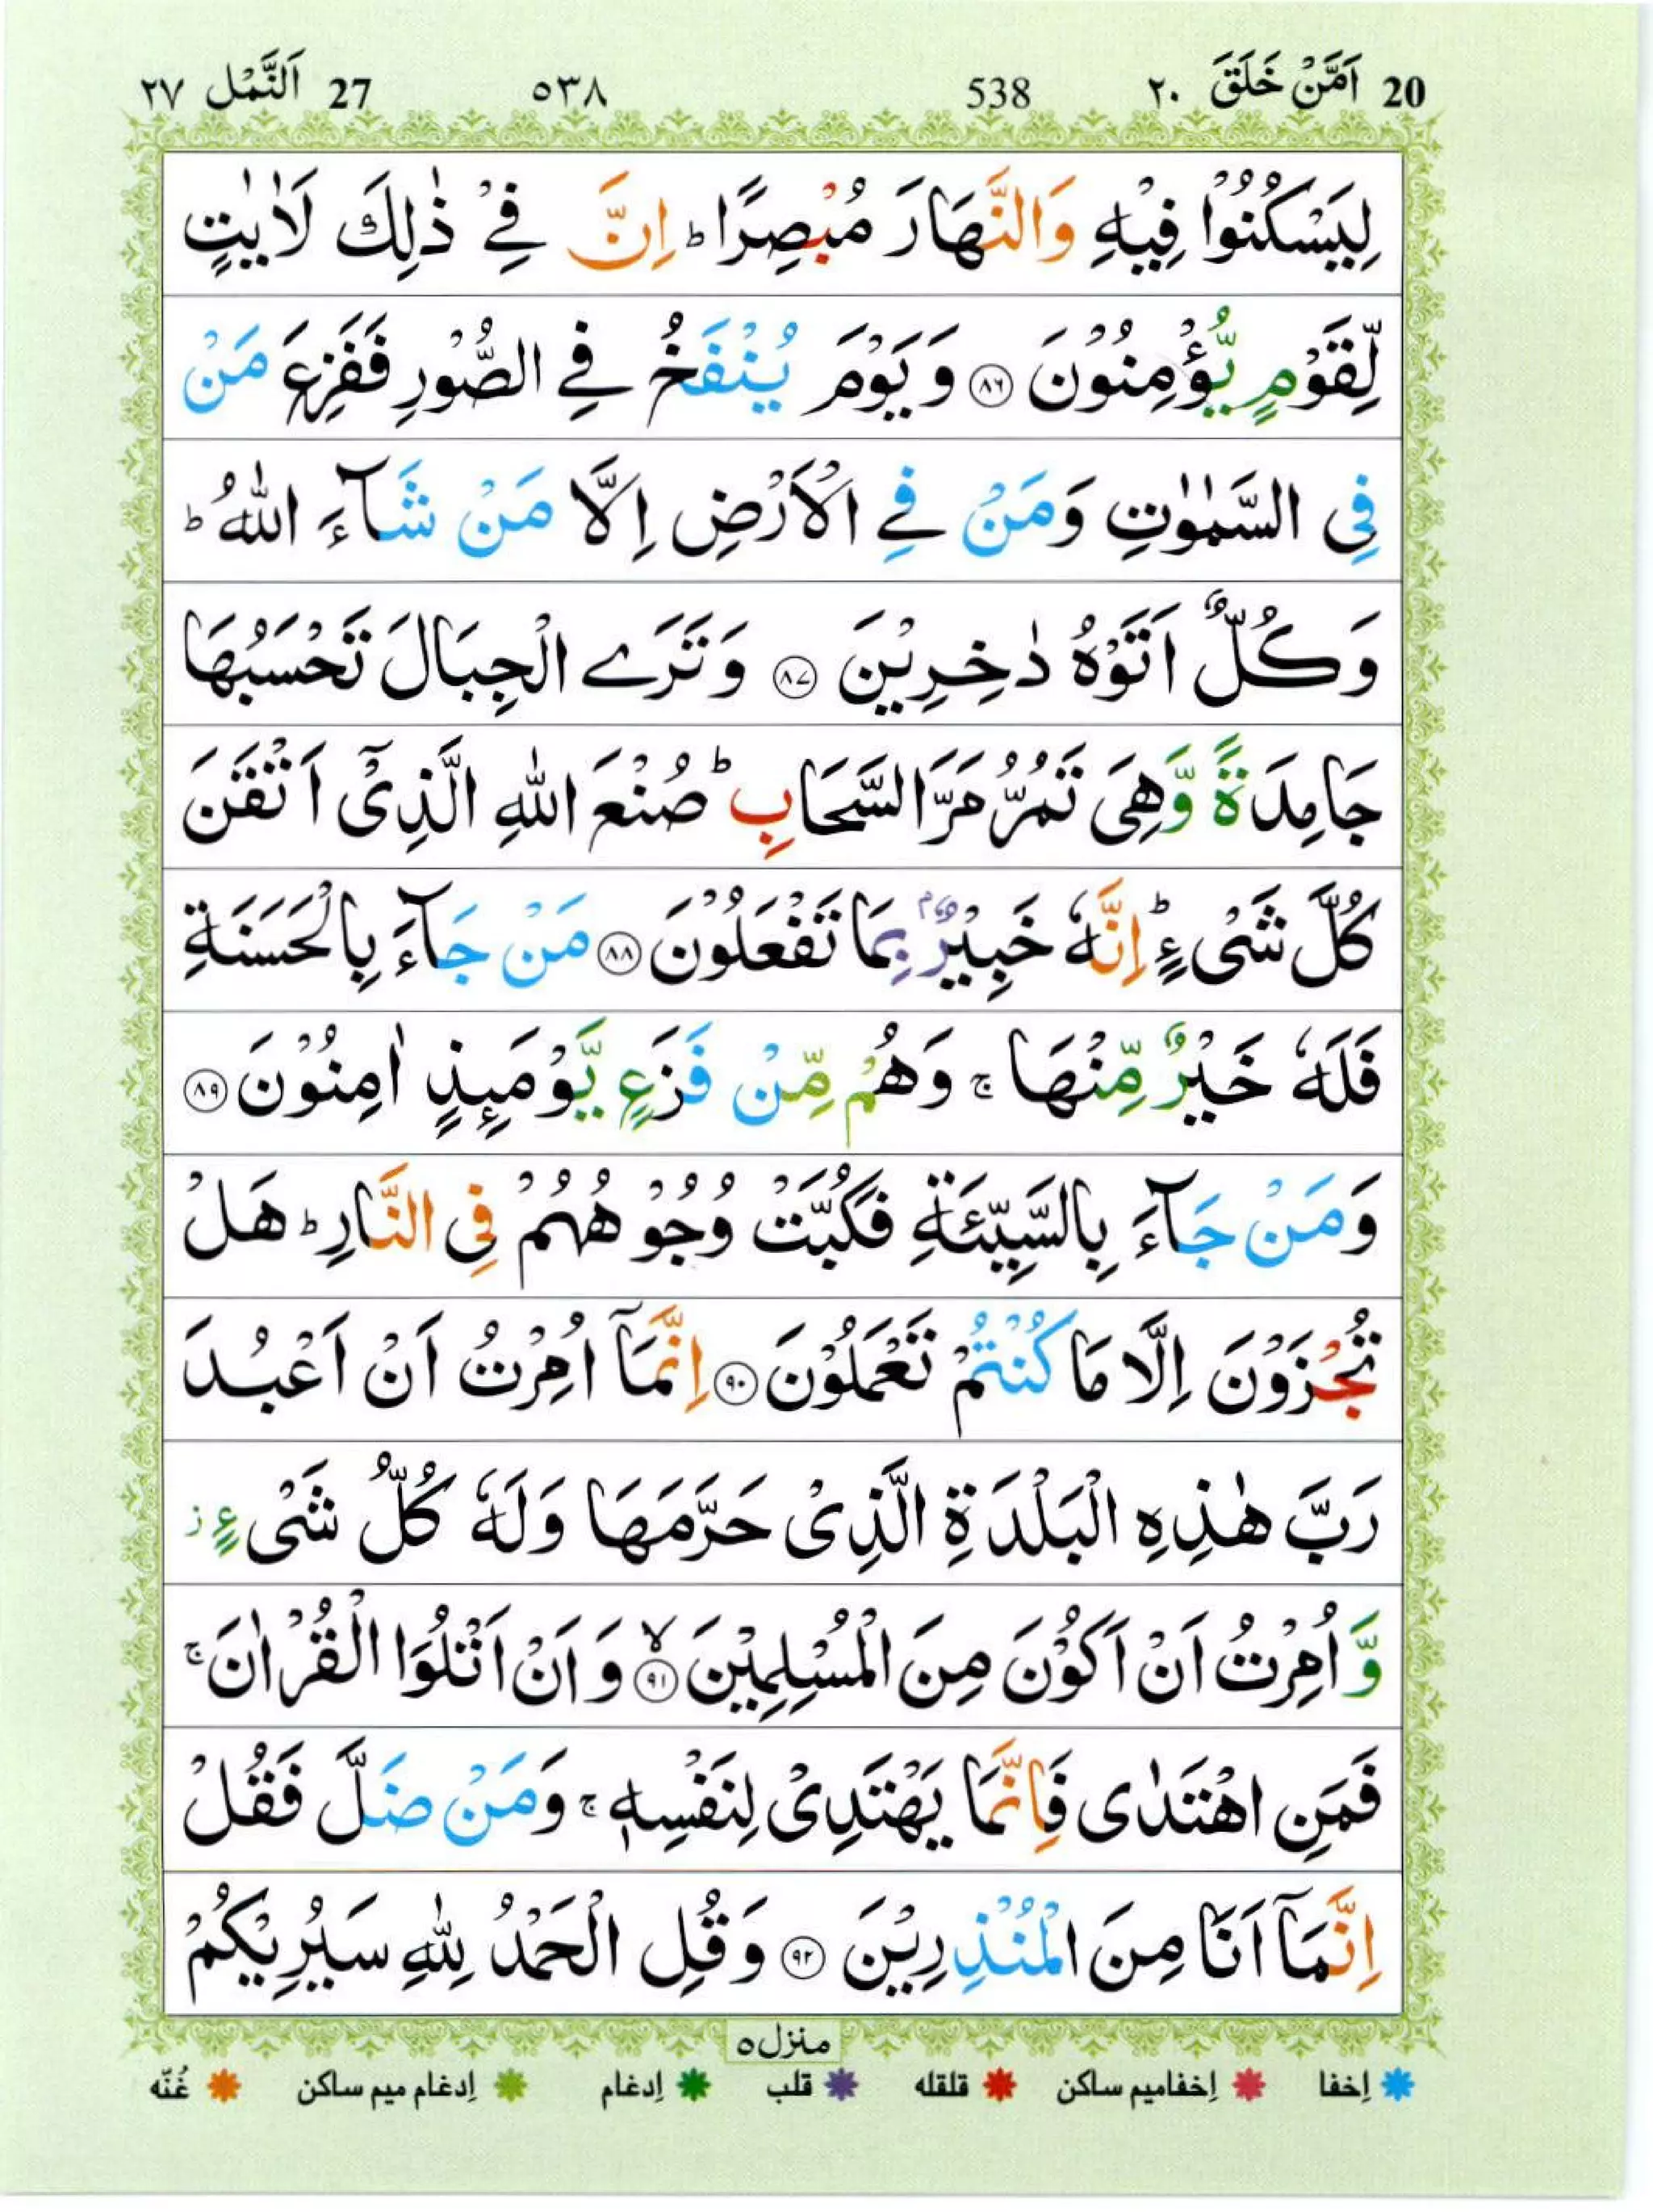 20 اَمَّنْ خَلَقَ ٢٠ 538 ٥٣٨ 27 اَلنَّمْل ٢٧
لِيَسْكُنُوْا فِيْهِ وَالنَّهَارَ مُبْصِرًا ؕ اِنَّ فِىْ ذٰلِكَ لَاٰيٰتٍ
لِّقَوْمٍ يُّؤْمِنُوْنَ ﴿٨٦﴾ وَ يَوْمَ يُنْفَخُ فِى الصُّوْرِ فَفَزِعَ مَنْ
فِى السَّمٰوٰتِ وَمَنْ فِى الْاَرْضِ اِلَّا مَنْ شَآءَ اللّٰهُ ؕ
وَكُلٌّ اَتَوْهُ دٰخِرِيْنَ ﴿٨٧﴾ وَ تَرَى الْجِبَالَ تَحْسَبُهَا
جَامِدَةً وَّهِىَ تَمُرُّ مَرَّ السَّحَابِ ؕ صُنْعَ اللّٰهِ الَّذِىْۤ اَتْقَنَ
كُلَّ شَىْءٍ ؕ اِنَّهٗ خَبِيْرٌۢ بِمَا تَفْعَلُوْنَ ﴿٨٨﴾ مَنْ جَآءَ بِالْحَسَنَةِ
فَلَهٗ خَيْرٌ مِّنْهَا ۚ وَهُمْ مِّنْ فَزَعٍ يَّوْمَئِذٍ اٰمِنُوْنَ ﴿٨٩﴾
وَمَنْ جَآءَ بِالسَّيِّئَةِ فَكُبَّتْ وُجُوْهُهُمْ فِى النَّارِ ؕ هَلْ
تُجْزَوْنَ اِلَّا مَا كُنْتُمْ تَعْمَلُوْنَ ﴿٩٠﴾ اِنَّمَاۤ اُمِرْتُ اَنْ اَعْبُدَ
رَبَّ هٰذِهِ الْبَلْدَةِ الَّذِىْ حَرَّمَهَا وَلَهٗ كُلُّ شَىْءٍ ز
وَّ اُمِرْتُ اَنْ اَكُوْنَ مِنَ الْمُسْلِمِيْنَ ۙ﴿٩١﴾ وَ اَنْ اَتْلُوَا الْقُرْاٰنَ ۚ
فَمَنِ اهْتَدٰى فَاِنَّمَا يَهْتَدِىْ لِنَفْسِهٖ ۚ وَمَنْ ضَلَّ فَقُلْ
اِنَّمَاۤ اَنَا مِنَ الْمُنْذِرِيْنَ ﴿٩٢﴾ وَ قُلِ الْحَمْدُ لِلّٰهِ سَيُرِيْكُمْ
منزل ٥
اِخفا اِخفامیم ساکن قلقله قلب اِدغام اِدغام میم ساکن غُنّه